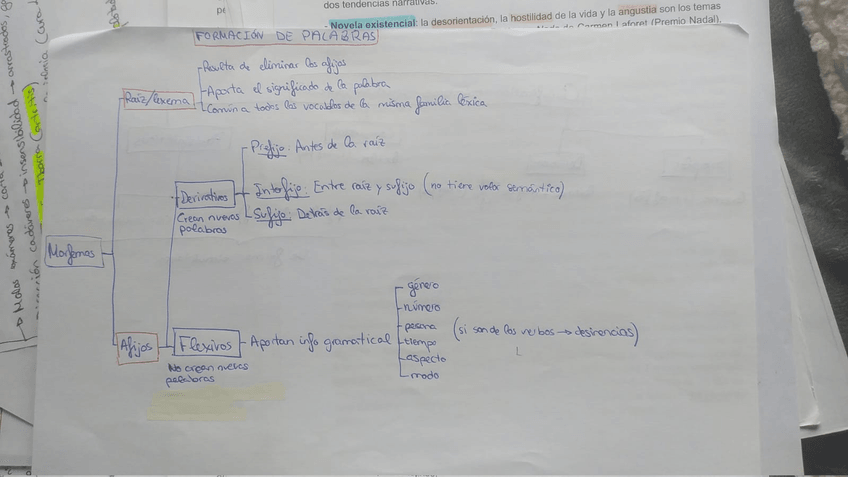 dos tendencias narrativas.
- Novela existencial: la desorientación, la hostilidad de la vida y la angustia son los temas
Carmen Laforet (Premio Nadal).
FORMACIÓN DE PALABRAS
Resulta de eliminar los afijos
Raíz/lexema
Aporta el significado de la palabra
Común a todos los vocablos de la misma familia léxica
Prefijo: Antes de la raíz
Derivativos
Interfijo: Entre raíz y sufijo (no tiene valor semántico)
Crean nuevas
palabras
Sufijo: Detrás de la raíz
Morfemas
Afijos
Flexivos
No crean nuevas
palabras
Aportan info gramatical
género
número
persona
tiempo
aspecto
modo
(si son de los verbos → desinencias)
insensibilidad → arrastrados,